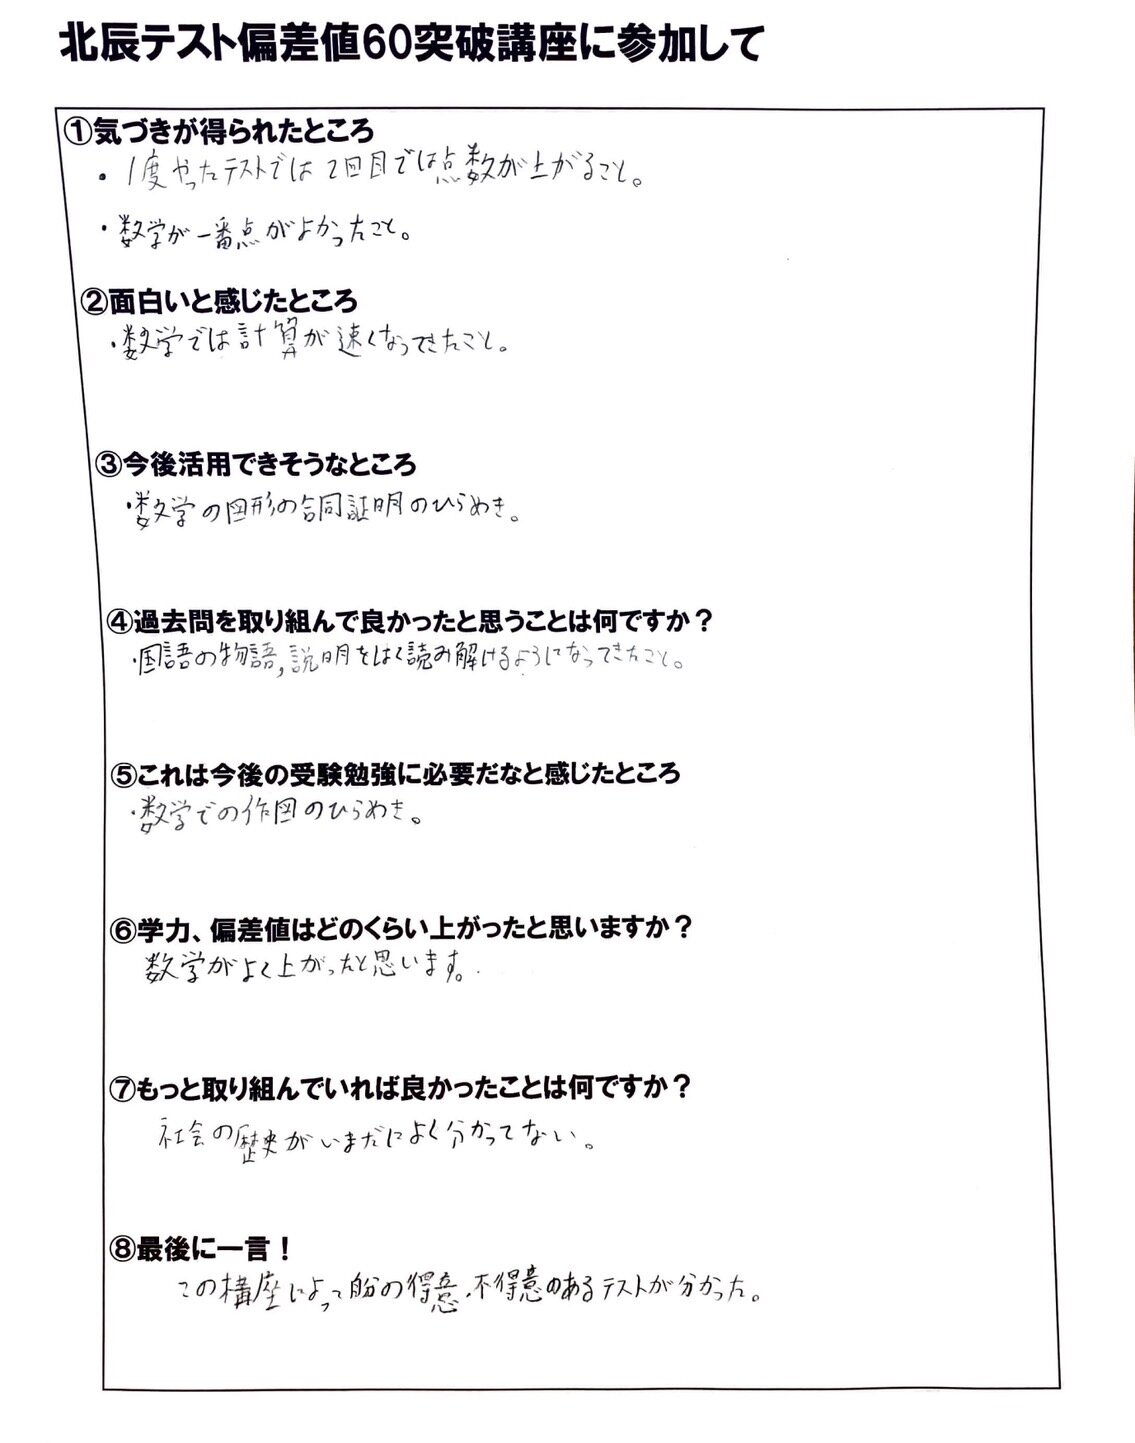 北辰テスト偏差値60突破講座に参加して
①気づきが得られたところ
・1度やったテストでは2回目では点数が上がること。
・数学が一番点がよかったこと。
②面白いと感じたところ
・数学では計算が速くなってきたこと。
③今後活用できそうなところ
・数学の図形の合同証明のひらめき。
④過去問を取り組んで良かったと思うことは何ですか？
・国語の物語,説明をはく読み解けるようになってきたこと。
⑤これは今後の受験勉強に必要だなと感じたところ
・数学での作図のひらめき。
⑥学力、偏差値はどのくらい上がったと思いますか？
数学がよく上がったと思います。
⑦もっと取り組んでいれば良かったことは何ですか？
社会の歴史がいまだによく分かってない。
⑧最後に一言！
この構座によって の得意、不得意のあるテストが分かった。